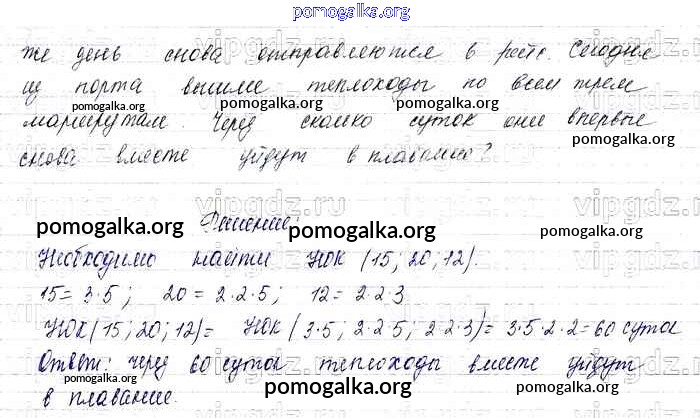 pomogalka.org
же день снова отправляются в рейс. Сегодня
из порта вышли теплоходы по всем трем
pomogalka.org pomogalka.org pomogalka.org
маршрутам. Через сколько суток они впервые
pomogalka.org pomogalka.org
снова вместе уйдут в плавание?
vipgdz.ru vipgdz.ru
pomogalka.org Решение: pomogalka.org pomogalka.org
Необходимо найти НОК (15; 20; 12).
15 = 3·5; 20 = 2·2·5; 12 = 2·2·3
НОК(15; 20; 12) = НОК (3·5; 2·2·5; 2·2·3) = 3·5·2·2 = 60 суток
Ответ: через 60 суток теплоходы вместе уйдут
pomogalka.org pomogalka.org pomogalka.org
в плавание.